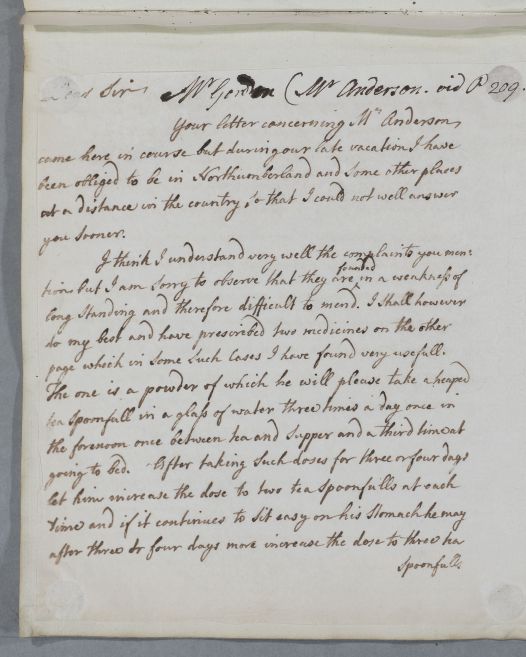 Dear Sir Mr Gordon (Mr Anderson. vid P 209.
Your letter concerning Mr Anderson
came here in course but during our late vacation I have
been obliged to be in Northumberland and some other places
at a distance in the country so that I could not well answer
you sooner.
I think I understand very well the complaints you men-
tion but I am sorry to observe that they are founded in a weakness of
long standing and therefore difficult to mend. I shall however
do my best and have prescribed two medicines on the other
page which in some such cases I have found very usefull.
The one is a powder of which he will please take a heaped
tea spoonfull in a glass of water three times a day once in
the forenoon once between tea and supper and a third time at
going to bed. After taking such doses for three or four days
let him increase the dose to two tea spoonfulls at each
time and if it continues to sit easy on his stomach he may
after three or four days more increase the dose to three tea
spoonfulls